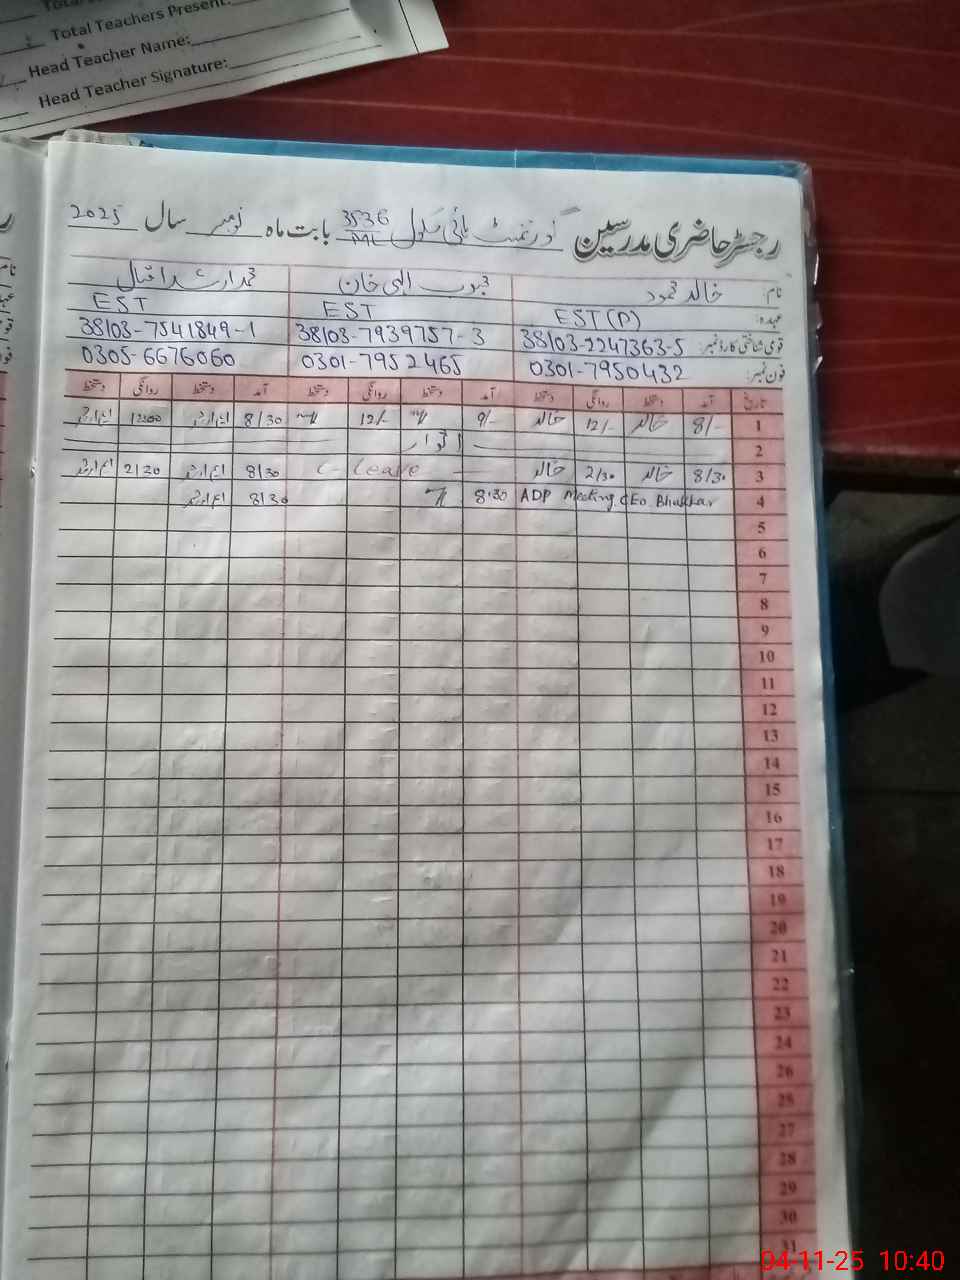 Total Teachers Present:
Head Teacher Name:
Head Teacher Signature:
رجسٹر حاضری مدرسین گورنمنٹ ہائی سکول 35-36 ML بابت ماہ نومبر سال 2025
نام: خالد محمود محبوب الہی خان محمد ارشد اقبال
عہدہ: EST (P) EST EST
قومی شناختی کارڈ نمبر: 38103-2247363-5 38103-7939757-3 38103-7541849-1
فون نمبر: 0301-7950432 0301-7952465 0305-6676060
تاریخ آمد دستخط روانگی دستخط آمد دستخط روانگی دستخط آمد دستخط روانگی دستخط
1 8/- خالد 12/- خالد 9/- 12/- 8/30 12:00
2 اتوار
3 8/30 خالد 2/30 خالد C-Leave 8/30 2/30
4 ADP Meeting CEO Bhakkar 8:30 8/30
5
6
7
8
9
10
11
12
13
14
15
16
17
18
19
20
21
22
23
24
26
25
27
28
29
30
31
04-11-25 10:40